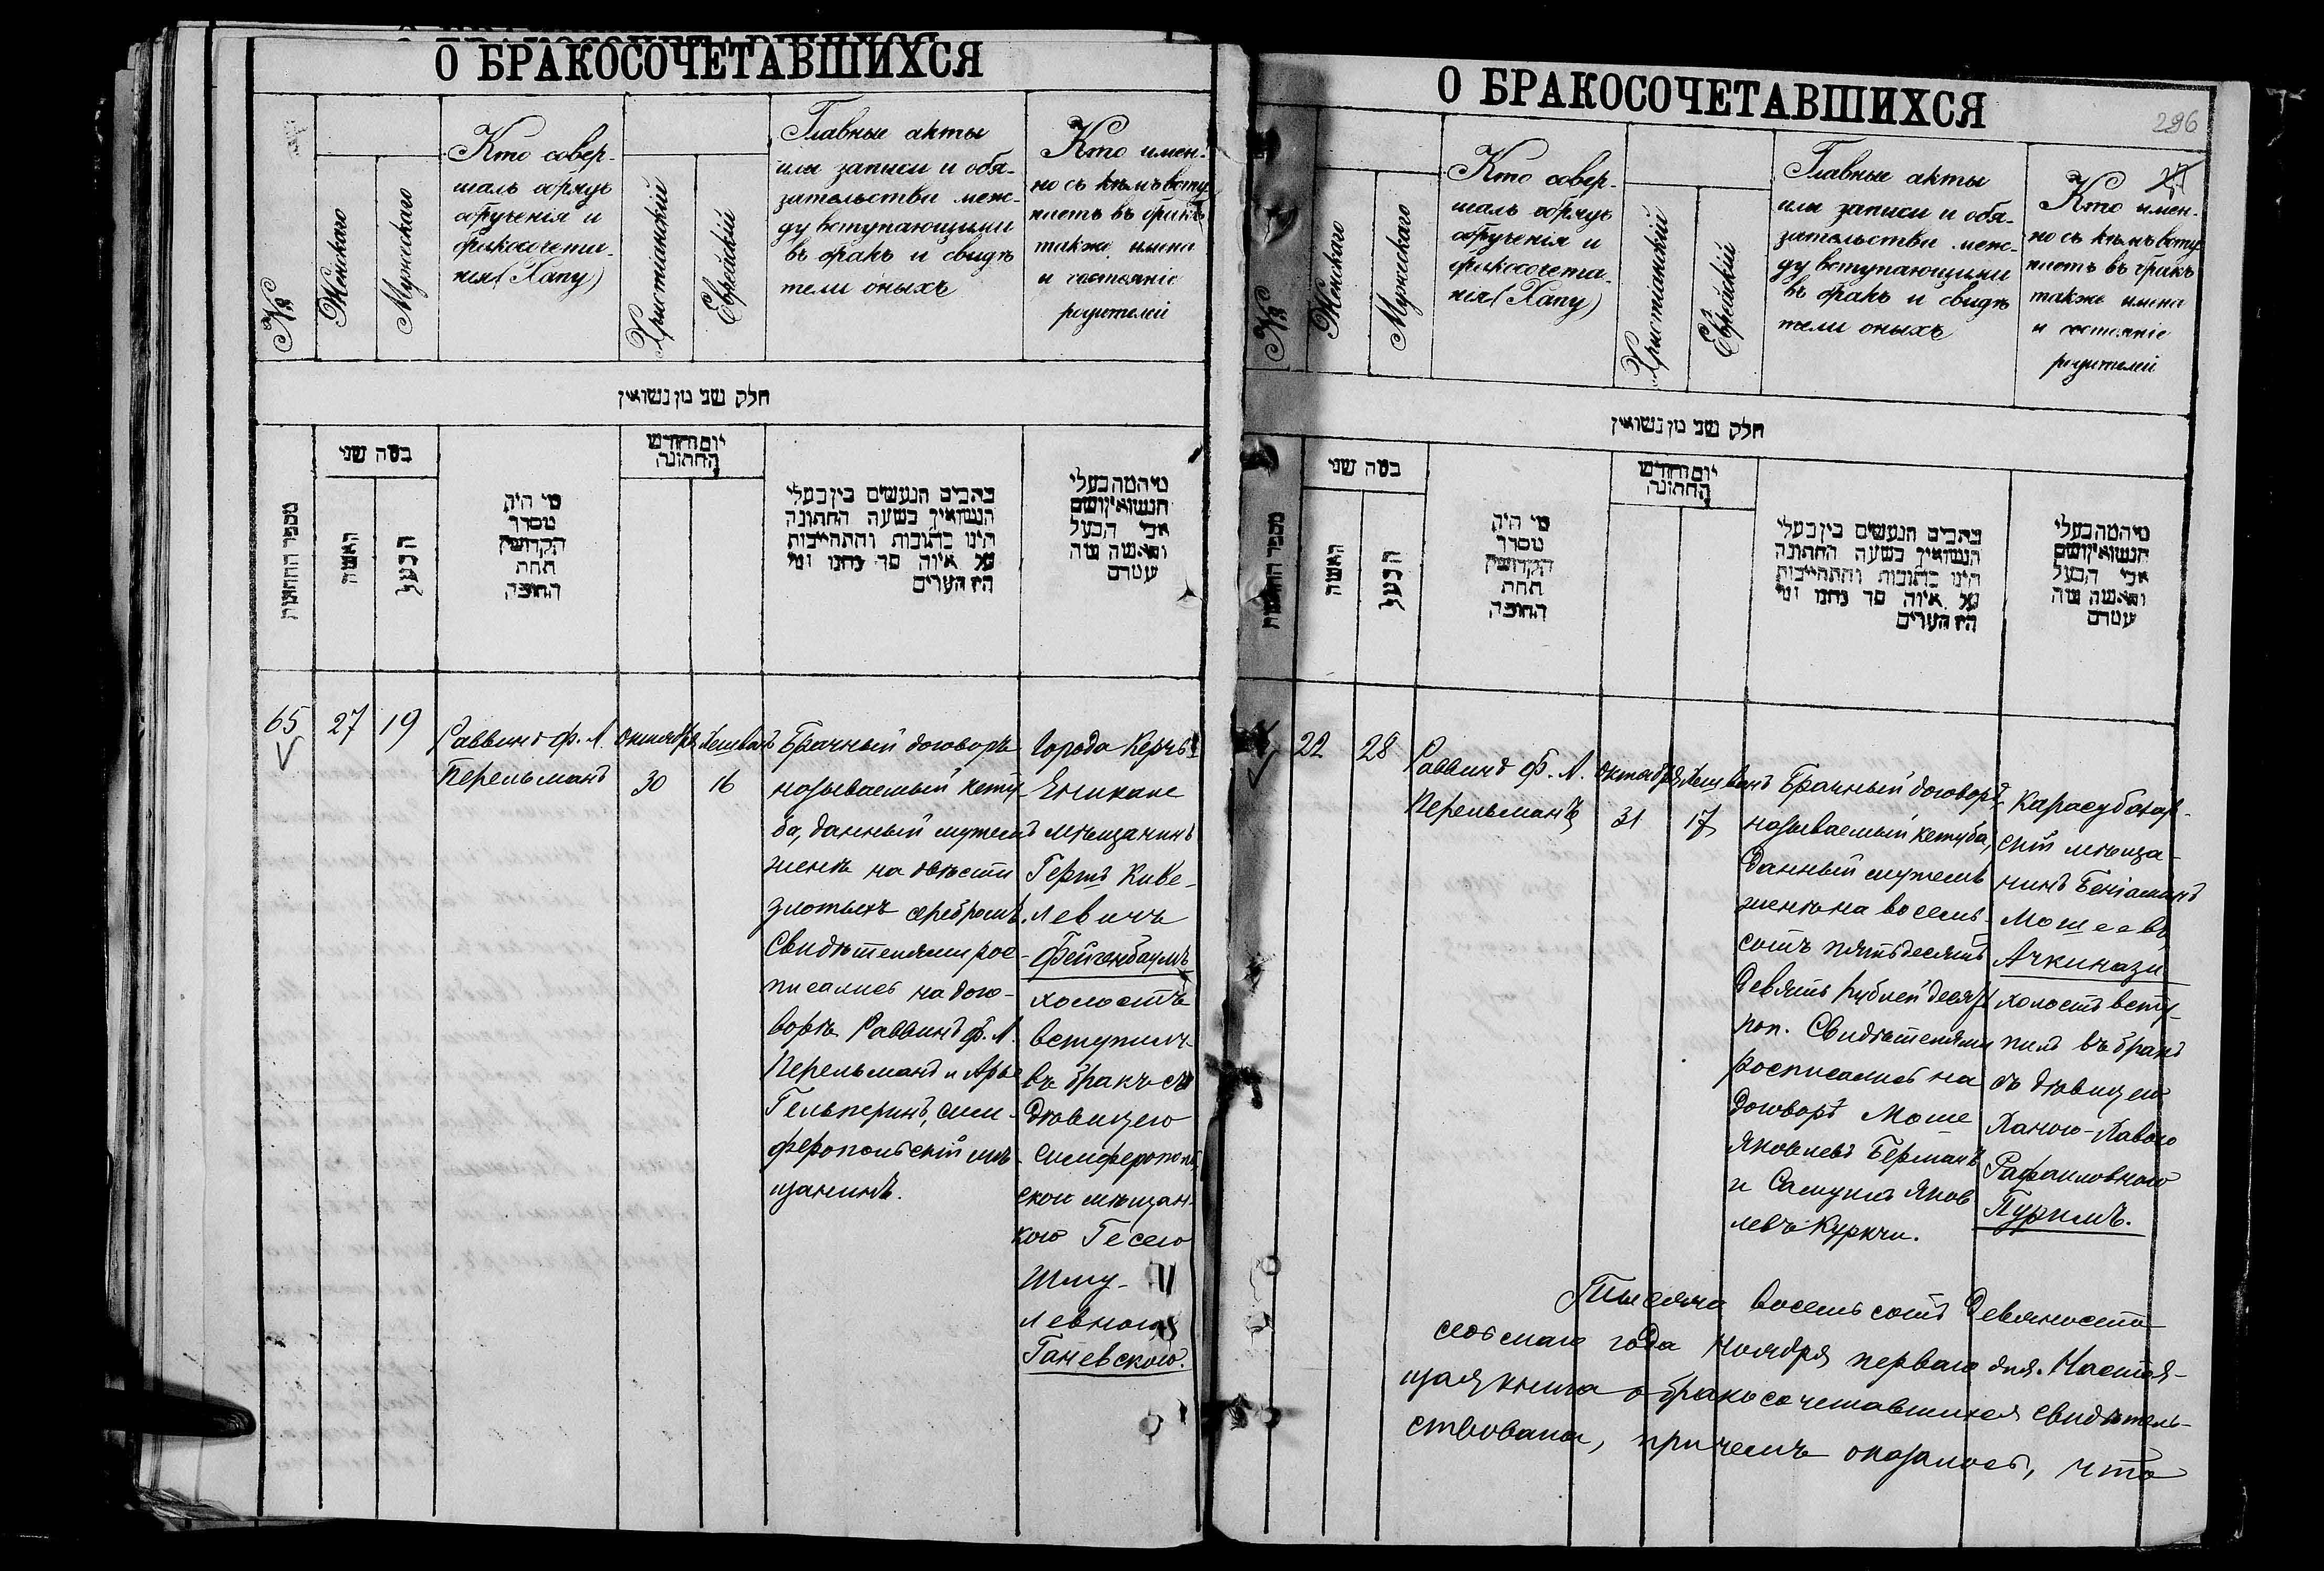 О БРАКОСОЧЕТАВШИХСЯ
№
Женскаго
Мужескаго
Кто совер-
шалъ обрядъ
обрученія и
бракосочета-
нія (Хапу)
Христіанскій
Еврейскій
Главные акты
или записи и обя-
зательства меж-
ду вступающими
въ бракъ и свидѣ
тели оныхъ
Кто имен-
но съ кѣмъ всту
паетъ въ бракъ
также имена
и состояніе
родителей
חלק שני מן נשואין
מספר החתונות
כמה שני
האשה
הבעל
מי היה
מסדר
הקדושין
תחת
החופה
יום וחודש
החתונה
כתבים הנעשים בין בעלי
הנשואין בשעה החתונה
היינו כתובות והתחייבות
על איזה סך נתנו ומי
היו העדים
מי המה בעלי
הנשואין ושם
אבי הבעל
והאשה ומה
עמדם
65
27
19
Раввинъ Ф. Л.
Перельманъ
октября
30
Хешванъ
16
Брачный договоръ
называемый кету-
ба, данный мужемъ
женѣ на двѣсти
злотыхъ серебромъ.
Свидѣтелями рос-
писались на дого-
ворѣ Раввинъ Ф. Л.
Перельманъ и Арье
Гельперинъ, сим-
феропольскій мѣ-
щанинъ.
Города Керчь
Еникале
мѣщанинъ
Гершъ Киве-
левичъ
Фейгенбаумъ
холостъ
вступилъ
въ бракъ съ
дѣвицею
симферополь
ской мѣщан-
кою Гесею
Шму-
левною
Ганевскою.
О БРАКОСОЧЕТАВШИХСЯ
296
№
Женскаго
Мужескаго
Кто совер-
шалъ обрядъ
обрученія и
бракосочета-
нія (Хапу)
Христіанскій
Еврейскій
Главные акты
или записи и обя-
зательства меж-
ду вступающими
въ бракъ и свидѣ
тели оныхъ
Кто имен-
но съ кѣмъ всту
паетъ въ бракъ
также имена
и состояніе
родителей
חלק שני מן נשואין
מספר החתונות
כמה שני
האשה
הבעל
מי היה
מסדר
הקדושין
תחת
החופה
יום וחודש
החתונה
כתבים הנעשים בין בעלי
הנשואין בשעה החתונה
היינו כתובות והתחייבות
על איזה סך נתנו ומי
היו העדים
מי המה בעלי
הנשואין ושם
אבי הבעל
והאשה ומה
עמדם
22
28
Раввинъ Ф. Л.
Перельманъ
октября
31
Хешванъ
17
Брачный договоръ
называемый кетуба,
данный мужемъ
женѣ на восемь-
сотъ пятьдесятъ
девять рублей десять
коп. Свидѣтелями
росписались на
договорѣ Моше
Яковлевъ Берманъ
и Самуилъ Яков
левъ Куркчи.
Карасубазар-
скій мѣща-
нинъ Беніаминъ
Мошеевъ
Ачкинази
холостъ всту-
пилъ въ бракъ
съ дѣвицею
Ханою-Хавою
Рафаиловною
Пуримъ.
Тысяча восемьсотъ девяносто
седьмаго года ноября перваго дня. Настоя-
щая книга о бракосочетавшихся свидѣтель-
ствована, причемъ оказалось, что